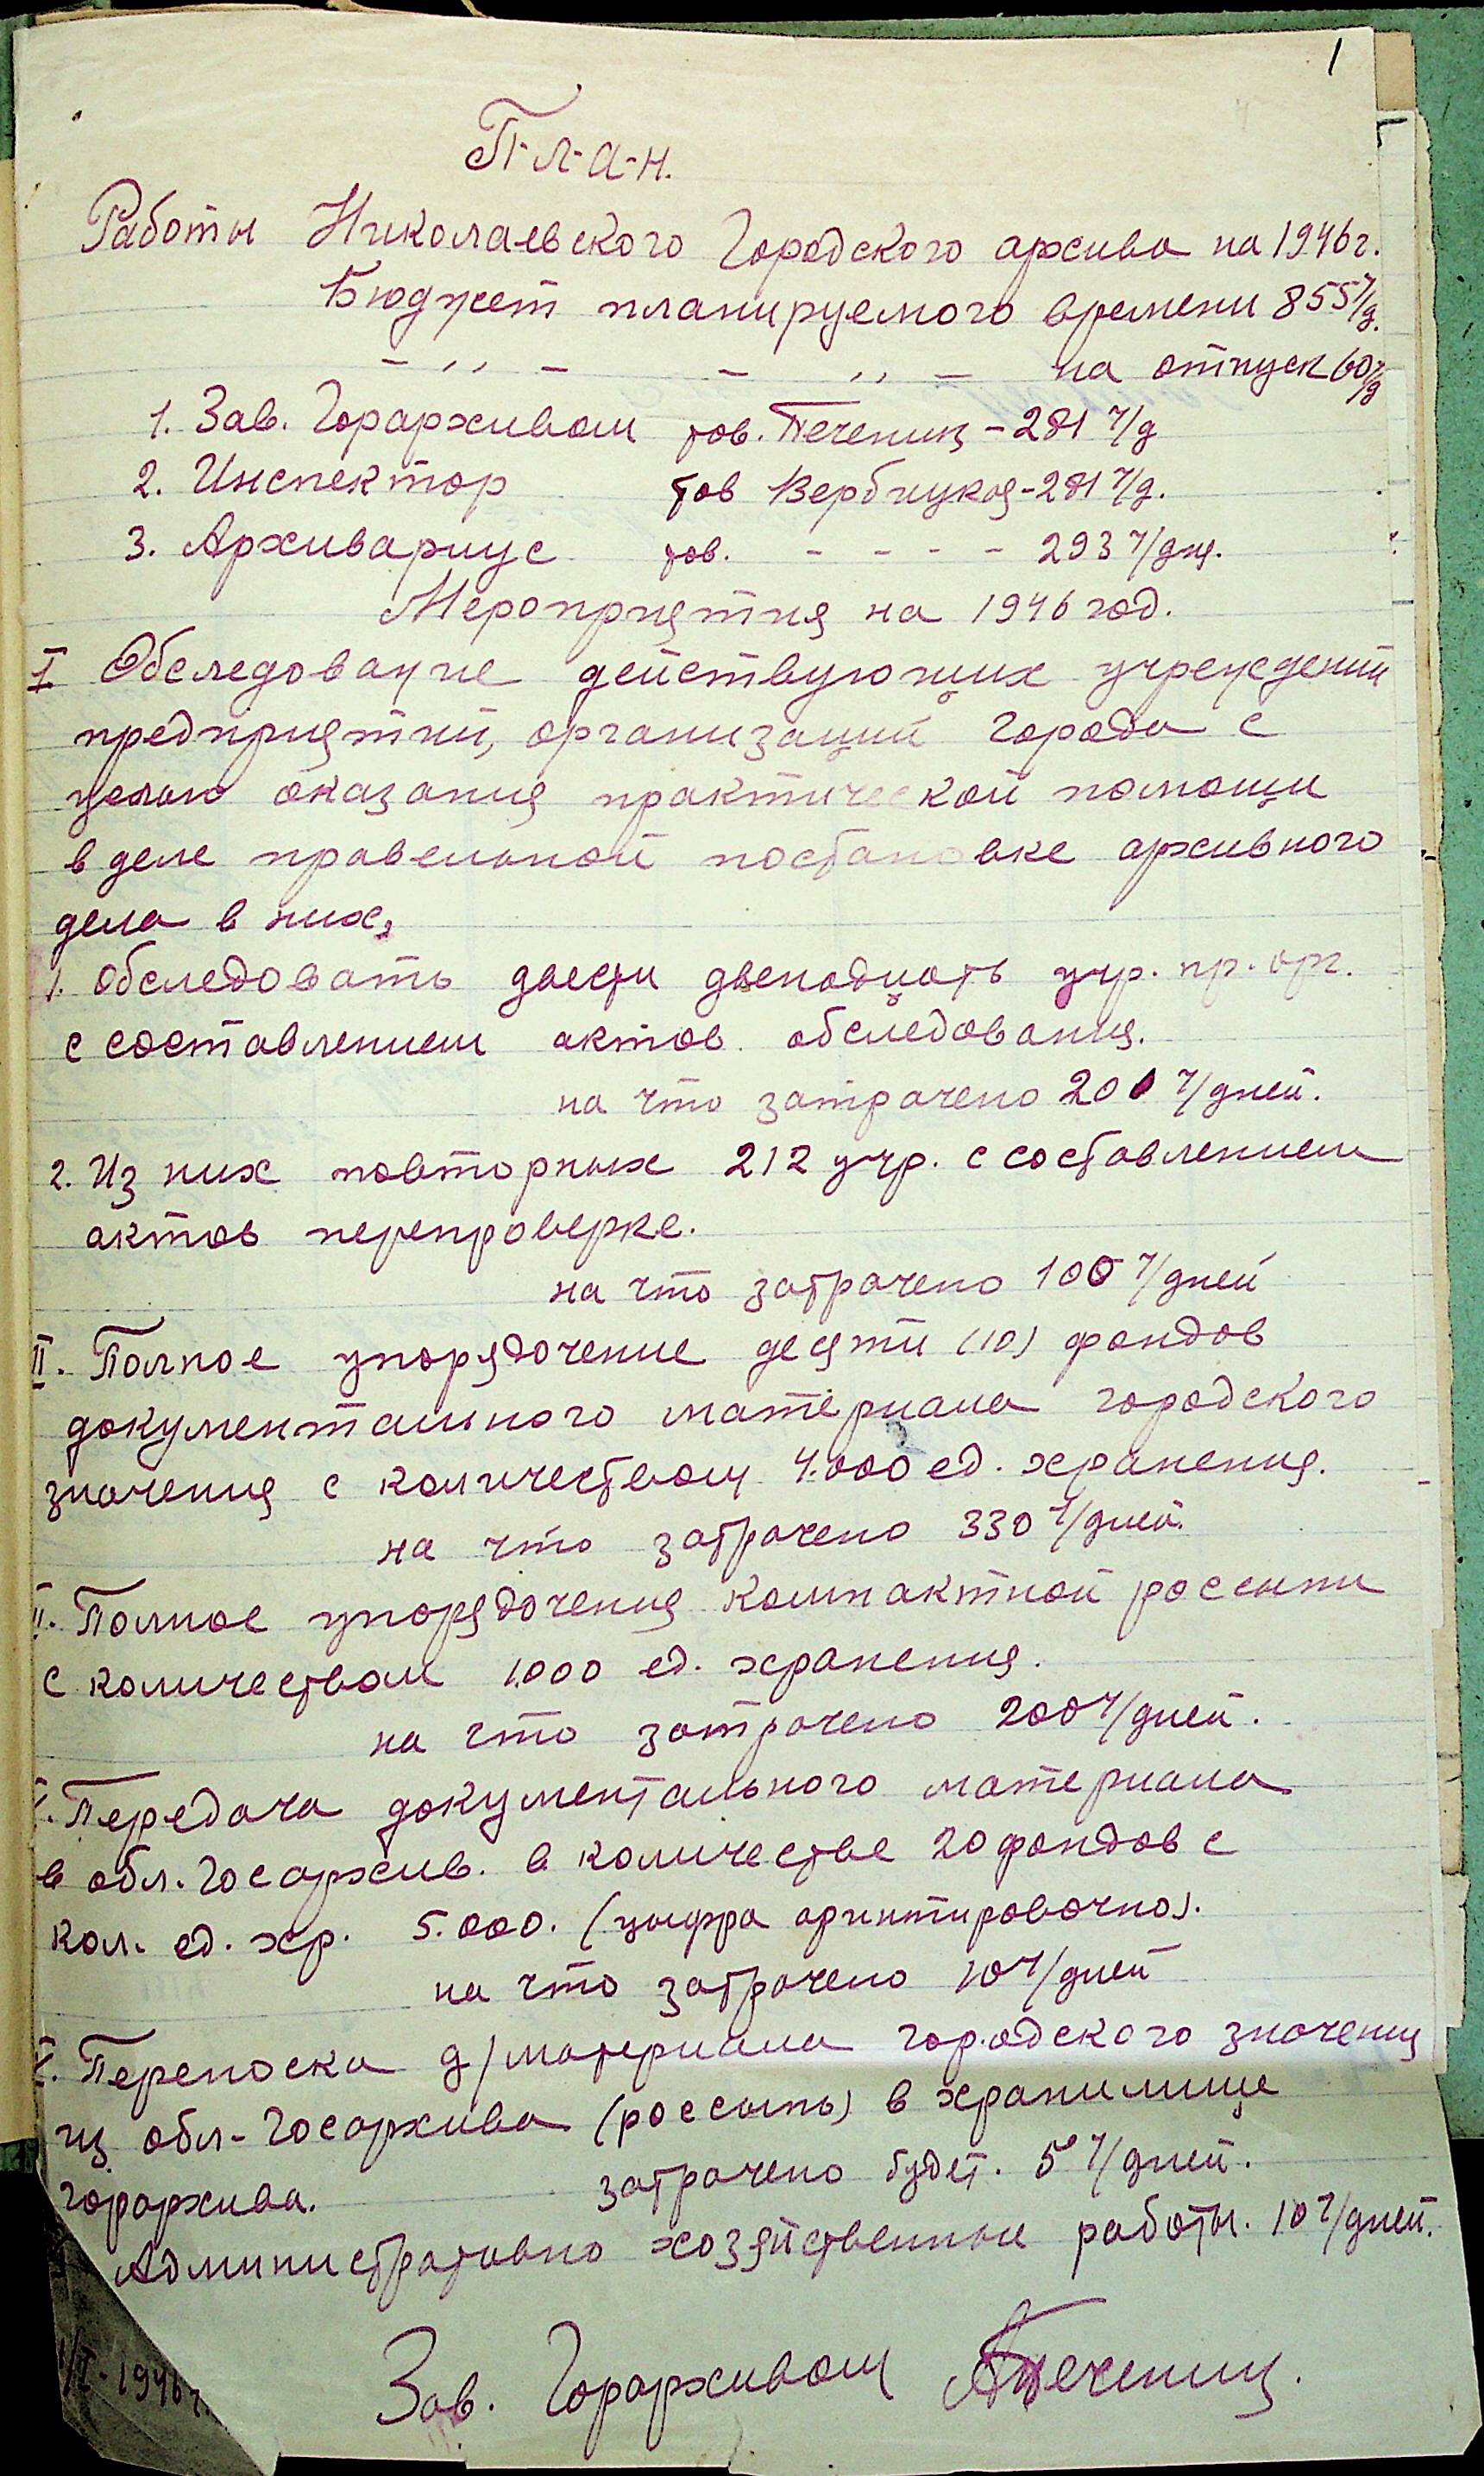 1
П-л-а-н.
Работы Николаевского Городского архива на 1946 г.
Бюджет планируемого времени 855 ч/д.
— ,, — — ,, — на отпуск 60 ч/д
1. Зав. Горархивом тов. Печениц - 281 ч/д
2. Инспектор тов Вербицкая - 281 ч/д.
3. Архивариус тов. - - - - 293 ч/дн.
Мероприятия на 1946 год.
I Обследование действующих учреждений
предприятий, организаций города с
целью оказания практической помощи
в деле правельной постановке архивного
дела в них,
1. Обследовать двести двенадцать учр. пр. орг.
с составлением актов обследования.
на что затрачено 200 ч/дней.
2. Из них повторных 212 учр. с составлением
актов перепроверке.
на что затрачено 100 ч/дней
II. Полное упорядочение десяти (10) фондов
документального материала городского
значения с количеством 4.000 ед. хранения.
на что затрачено 330 ч/дней.
II. Полное упорядочения компактной россыпи
с количеством 1.000 ед. хранения.
на что затрачено 200 ч/дней.
Передача документального материала
в обл. Госархив. в количестве 20 фондов с
кол. ед. хр. 5.000. (цыфра ориптировочно).
на что затрачено 10 ч/дней
Переноска д/материала городского значения
из обл-Госархива (россыпь) в хранилище
горархива. затрачено будет. 5 ч/дней.
Административно хозяйственные работы. 10 ч/дней.
I - 1946 г.
Зав. Горархивом Печениц.